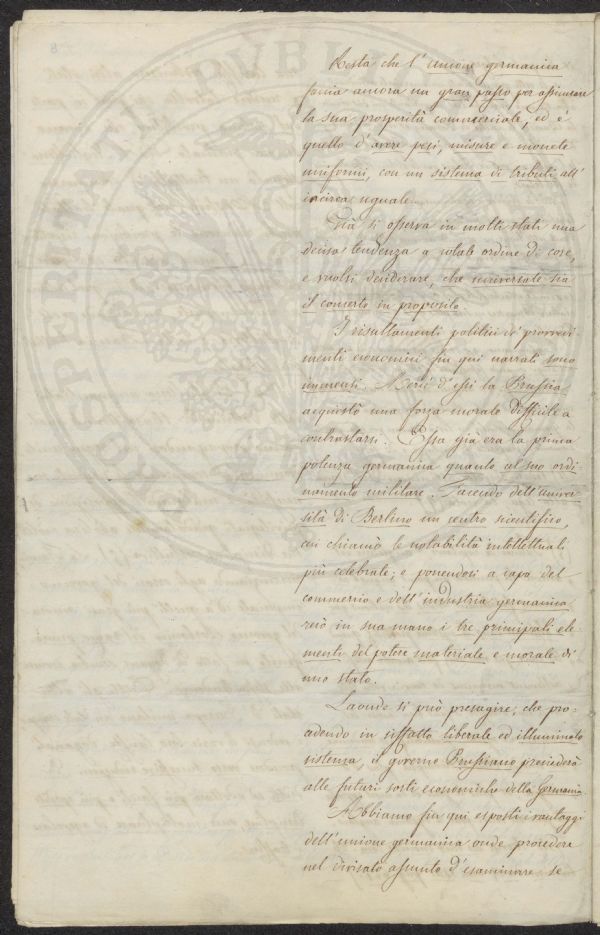 Resta che l'unione germanica
faccia ancora un gran passo per assicurare
la sua prosperità commerciale, ed è
quello d'avere pesi, misure e monete
uniformi, con un sistema di tributi all'
incirca uguale.
Già si osserva in molti stati una
decisa tendenza a cotale ordine di cose,
e vuolsi desiderare, che universale sia
il concerto in proposito.
I risultamenti politici de' provvedi
menti economici fin qui narrati sono
immensi. Mercè d'essi la Prussia
acquistò una forza morale difficile a
contrastarsi. Essa già era la prima
potenza germanica quanto al suo ordi
namento militare. Facendo dell'univer
sità di Berlino un centro scientifico,
cui chiamò le notabilità intellettuali
più celebrate; e ponendosi a capo del
commercio e dell'industria germanica
recò in sua mano i tre principali ele
menti del potere materiale e morale di
uno stato.
Laonde si può presagire, che pro=
cedendo in siffatto liberale ed illuminato
sistema, il governo Prussiano presiederà
alle futuri sorti economiche della Germania.
Abbiamo fin qui esposti i vantaggi
dell'unione germanica onde procedere
nel divisato assunto d'esaminare se